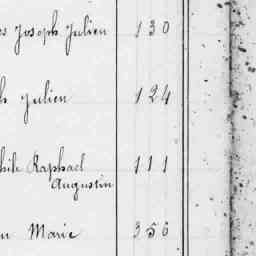 es Joseph Julien 130
h Julien 124
hile Raphael 111
Augustin
n Marie 356